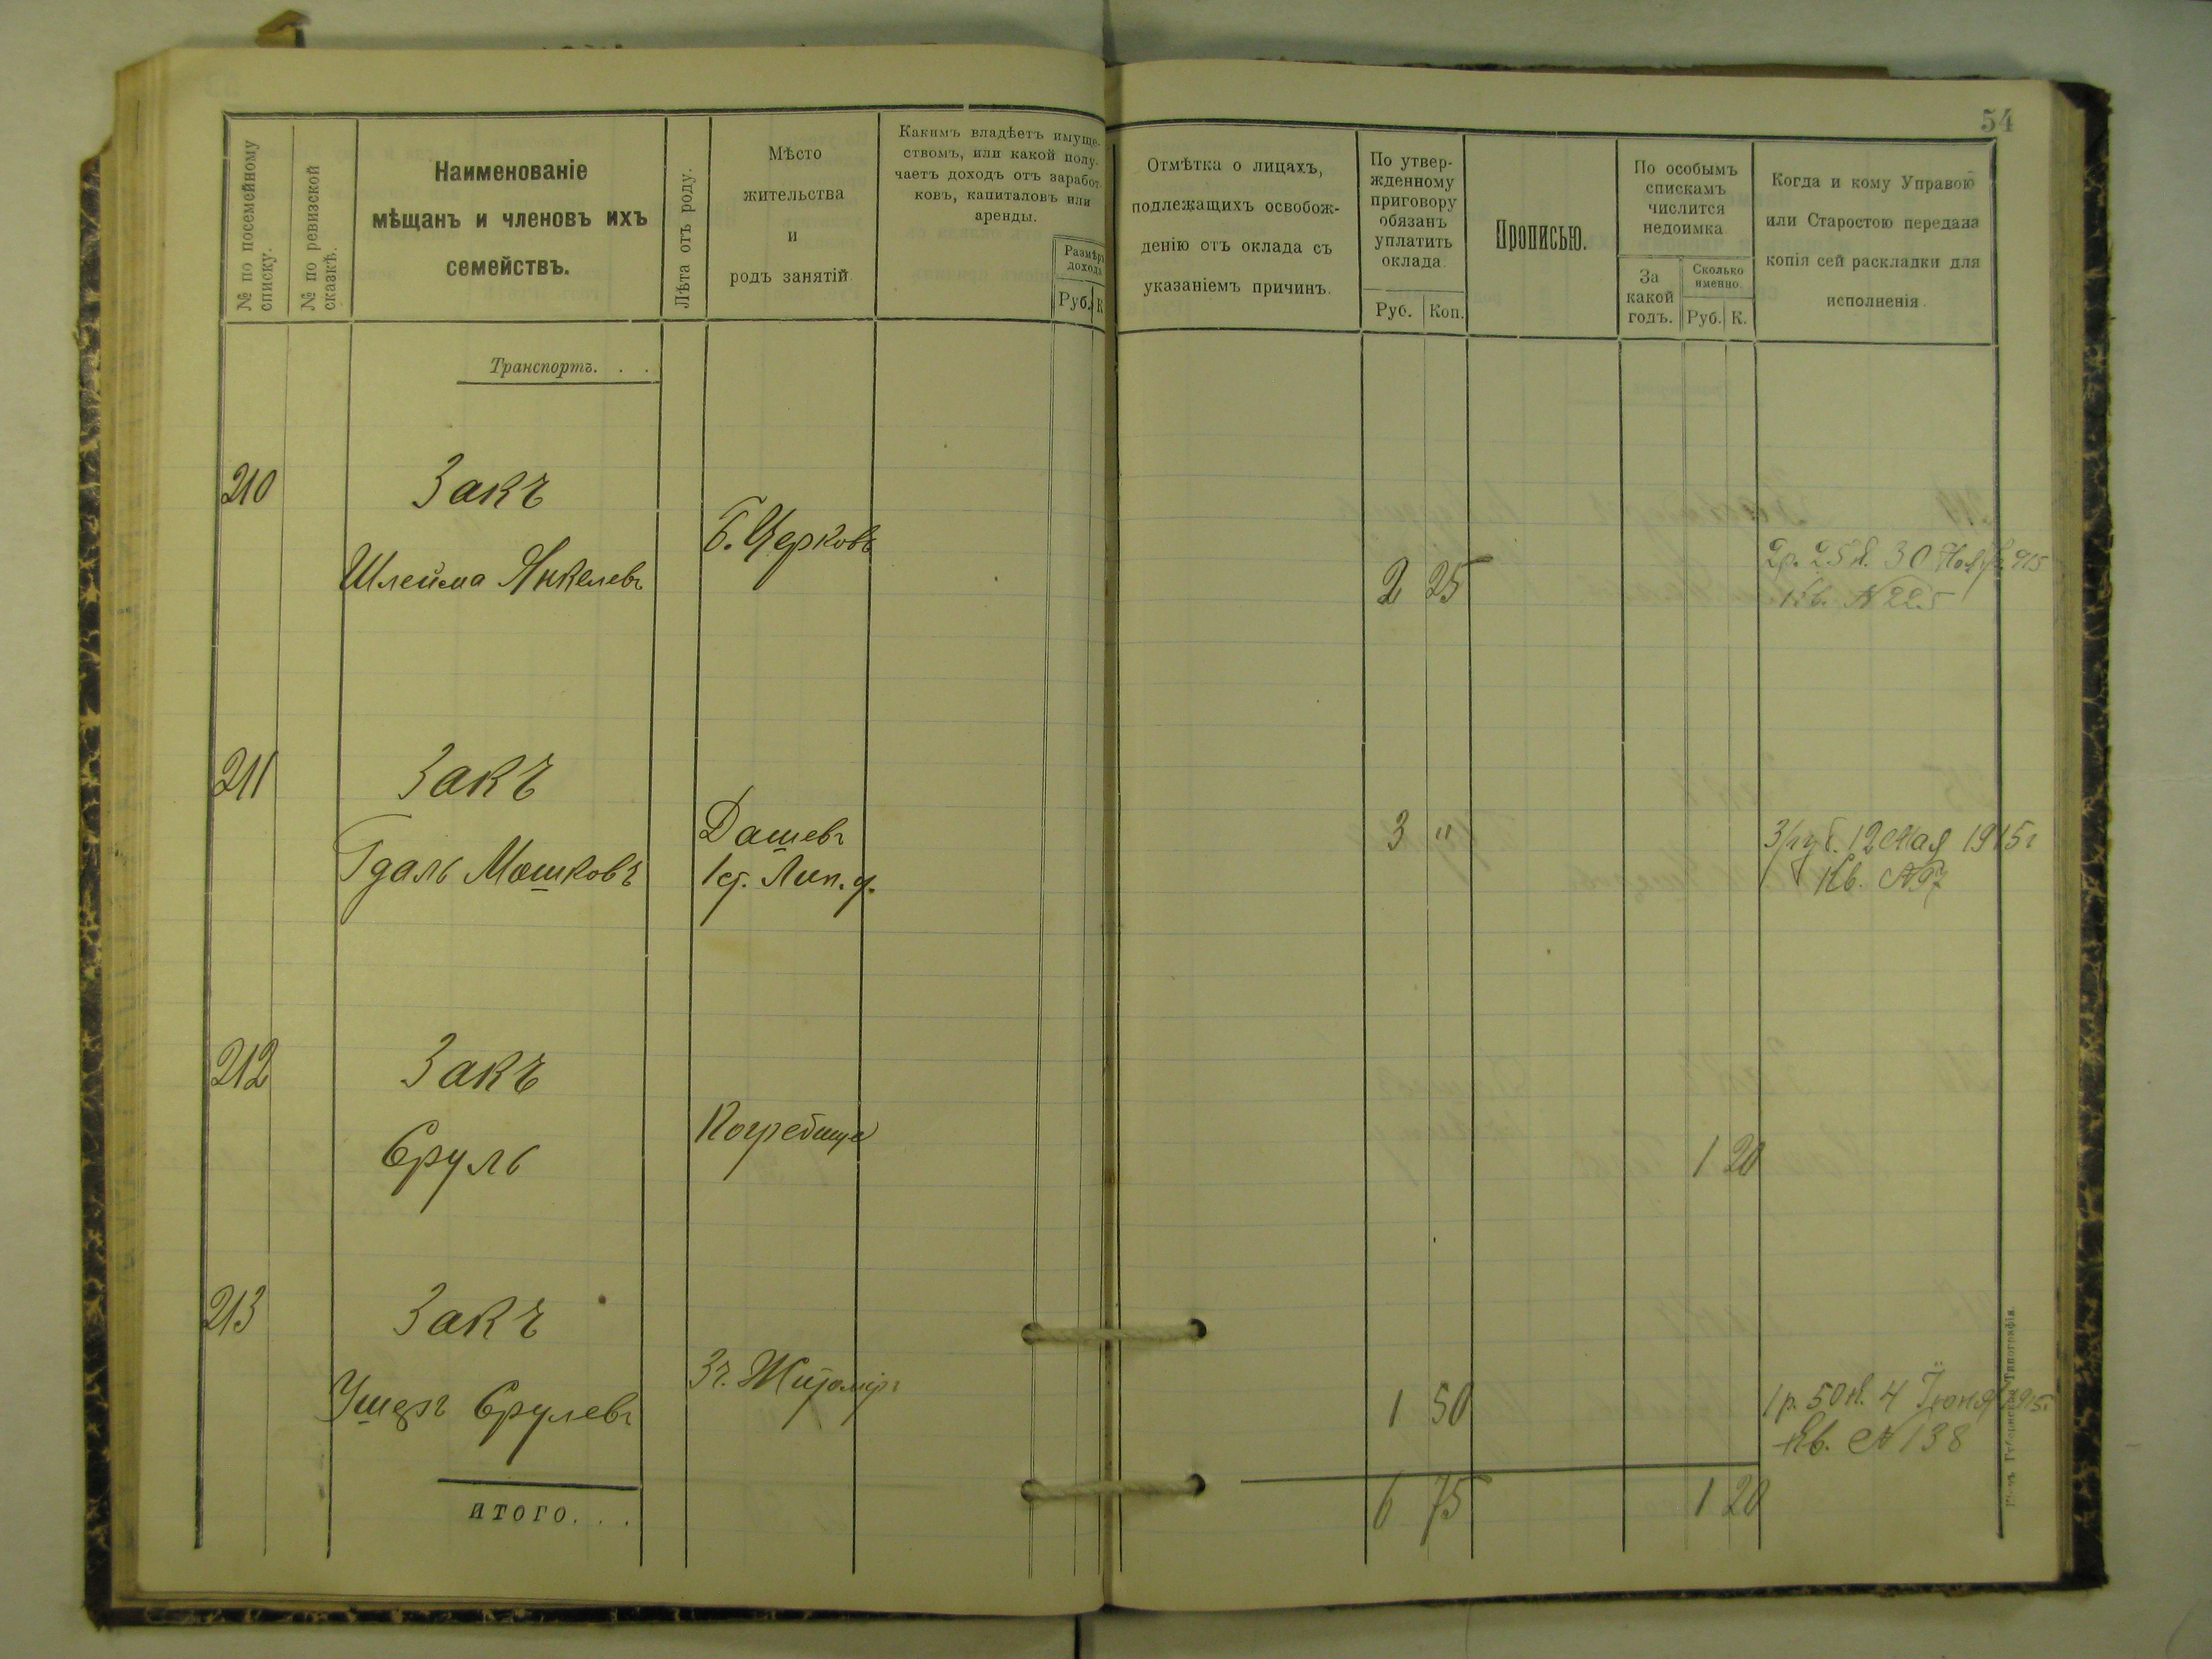 54
№ по посемейному
списку.
№ по ревизской
сказкѣ.
Наименованіе
мѣщанъ и членовъ ихъ
семействъ.
Лѣта отъ роду.
Мѣсто
жительства
и
родъ занятій.
Какимъ владѣетъ имуще-
ствомъ, или какой полу-
чаетъ доходъ отъ заработ-
ковъ, капиталовъ или
аренды.
Размѣръ
дохода
Руб. К
Отмѣтка о лицахъ,
подлежащихъ освобож-
денію отъ оклада съ
указаніемъ причинъ.
По утвер-
жденному
приговору
обязанъ
уплатить
оклада.
Руб. Коп.
Прописью.
По особымъ
спискамъ
числится
недоимка
За
какой
годъ.
Сколько
именно.
Руб. К.
Когда и кому Управою
или Старостою передана
копія сей раскладки для
исполненія.
Транспортъ. . .
210 Закъ
Шлейма Янкелевъ
Б. Церковь
2 25
2р. 25 к. 30 Ноября 915
Кв. № 225
211 Закъ
Гдаль Мошковъ
Дашевъ
Лип. у.
3 "
3 руб. 12 мая 1915г
Кв. № 97
212 Закъ
Сруль
Погребище
1 20
213 Закъ
Ушеръ Срулевъ
Житоміръ
1 50
1 р. 50 к. 4 Іюня 1915г
Кв. № 138
итого. . .
6 75
1 20
Губернская Типографія.